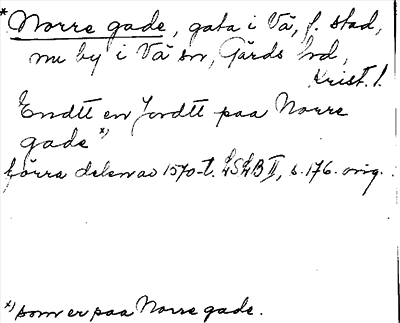 * Norre gade, gata i Vä, f. stad,
nu by i Vä sn, Gärds hd,
Krist. l.
Endtt en Jordtt paa Norre
gade x)
förra delen av 1570-t. LSLB II, s. 176. orig.
x) som er paa Norre gade.